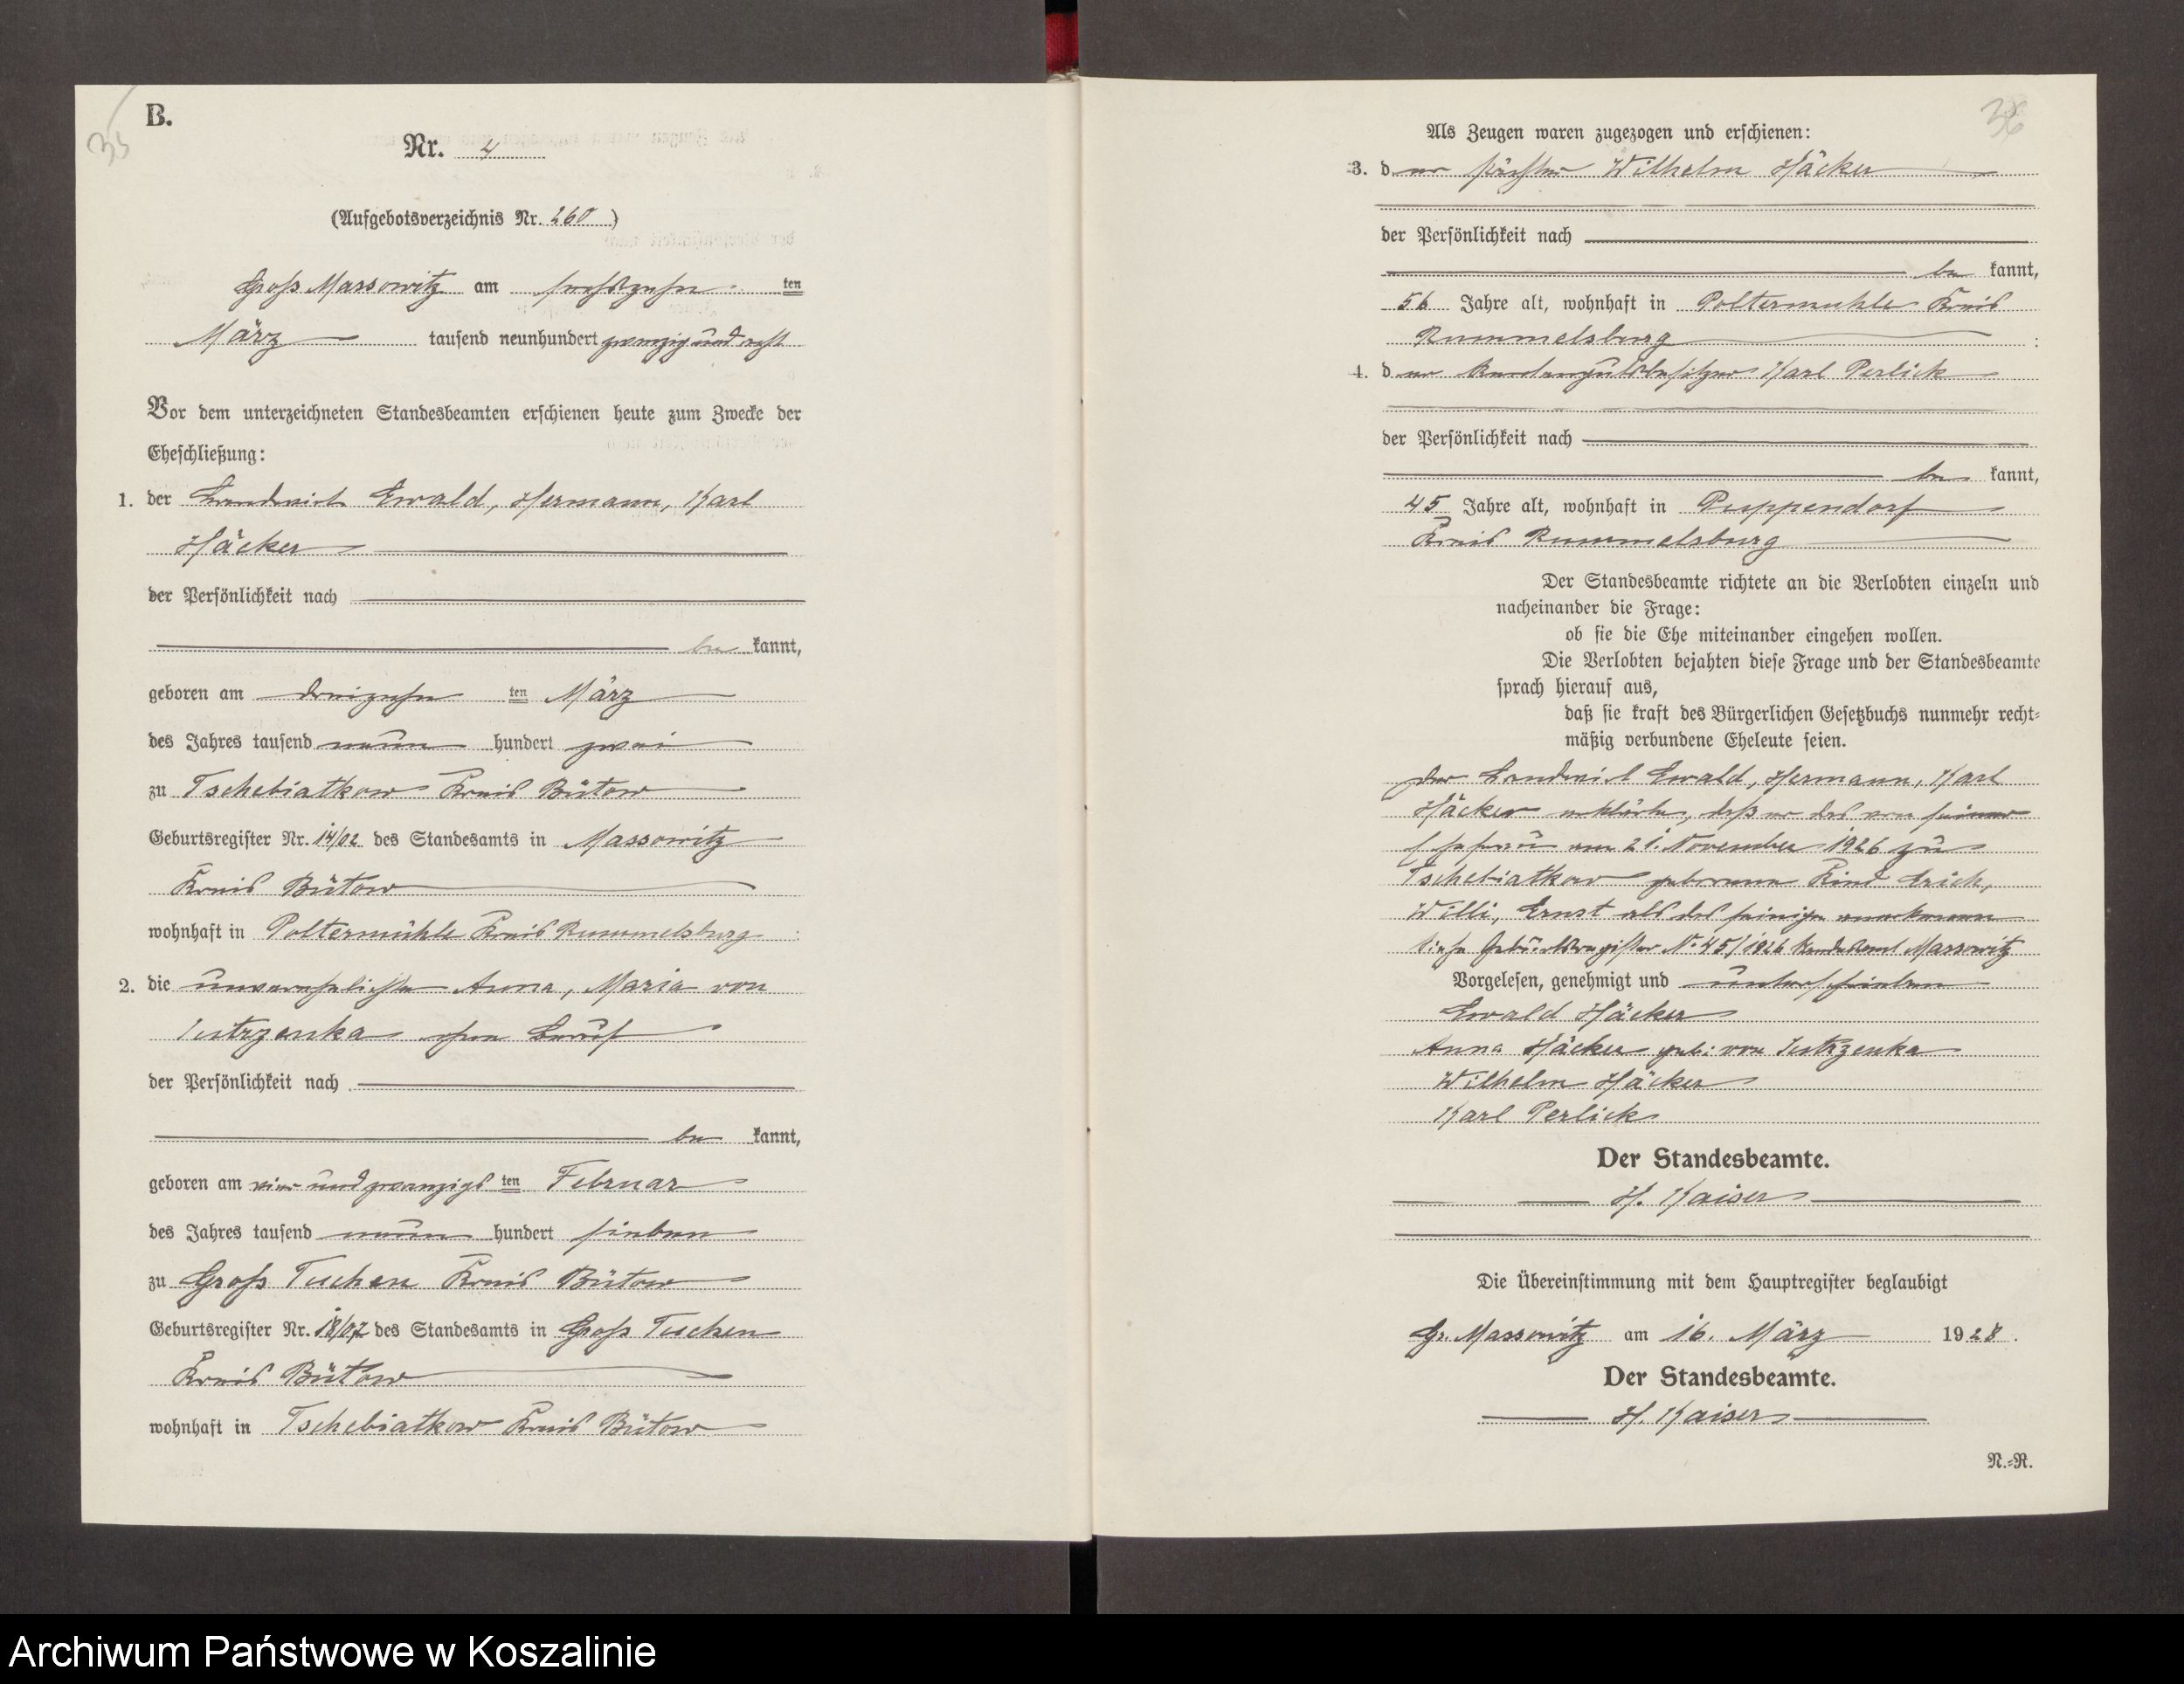 35
B.
Nr. 4
(Aufgebotsverzeichnis Nr. 260)
Groß Massowitz am sechszehn ten
März tausend neunhundert zwanzig und acht
Vor dem unterzeichneten Standesbeamten erschienen heute zum Zwecke der
Eheschließung:
1. der Landwirt Ewald, Hermann, Karl
Häcker
der Persönlichkeit nach
be kannt,
geboren am dreizehn ten März
des Jahres tausend neun hundert zwei
zu Tschebiatkow Kreis Bütow
Geburtsregister Nr. 14/02 des Standesamts in Massowitz
Kreis Bütow
wohnhaft in Poltermühle Kreis Rummelsburg
2. die unverehelichte Anna, Maria von
Jutrzenka ohne Beruf
der Persönlichkeit nach
be kannt,
geboren am vier und zwanzigs ten Februar
des Jahres tausend neun hundert sieben
zu Groß Tuchen Kreis Bütow
Geburtsregister Nr. 18/07 des Standesamts in Groß Tuchen
Kreis Bütow
wohnhaft in Tschebiatkow Kreis Bütow
36
Als Zeugen waren zugezogen und erschienen:
3. der Förster Wilhelm Häcker
der Persönlichkeit nach
be kannt,
56 Jahre alt, wohnhaft in Poltermuhle Kreis
Rummelsburg
4. der Rentengutsbesitzer Karl Perlick
der Persönlichkeit nach
be kannt,
45 Jahre alt, wohnhaft in Puppendorf
Kreis Rummelsburg
Der Standesbeamte richtete an die Verlobten einzeln und
nacheinander die Frage:
ob sie die Ehe miteinander eingehen wollen.
Die Verlobten bejahten diese Frage und der Standesbeamte
sprach hierauf aus,
daß sie kraft des Bürgerlichen Gesetzbuchs nunmehr recht-
mäßig verbundene Eheleute seien.
Der Landwirt Ewald, Hermann, Karl
Häcker erklärte, daß er das von seiner
Ehefrau am 21. November 1926 zu
Tschebiatkow geborene Kind Erich,
Willi, Ernst als das seinige anerkenne
Siehe Geburtsregister Nr 45/1926 Standesamt Massowitz
Vorgelesen, genehmigt und unterschrieben
Ewald Häcker
Anna Häcker geb. von Jutrzenka
Wilhelm Häcker
Karl Perlick
Der Standesbeamte.
H. Kaiser
Die Übereinstimmung mit dem Hauptregister beglaubigt
Gr. Massowitz am 16. März 1928.
Der Standesbeamte.
H. Kaiser
N.-R.
Archiwum Państwowe w Koszalinie